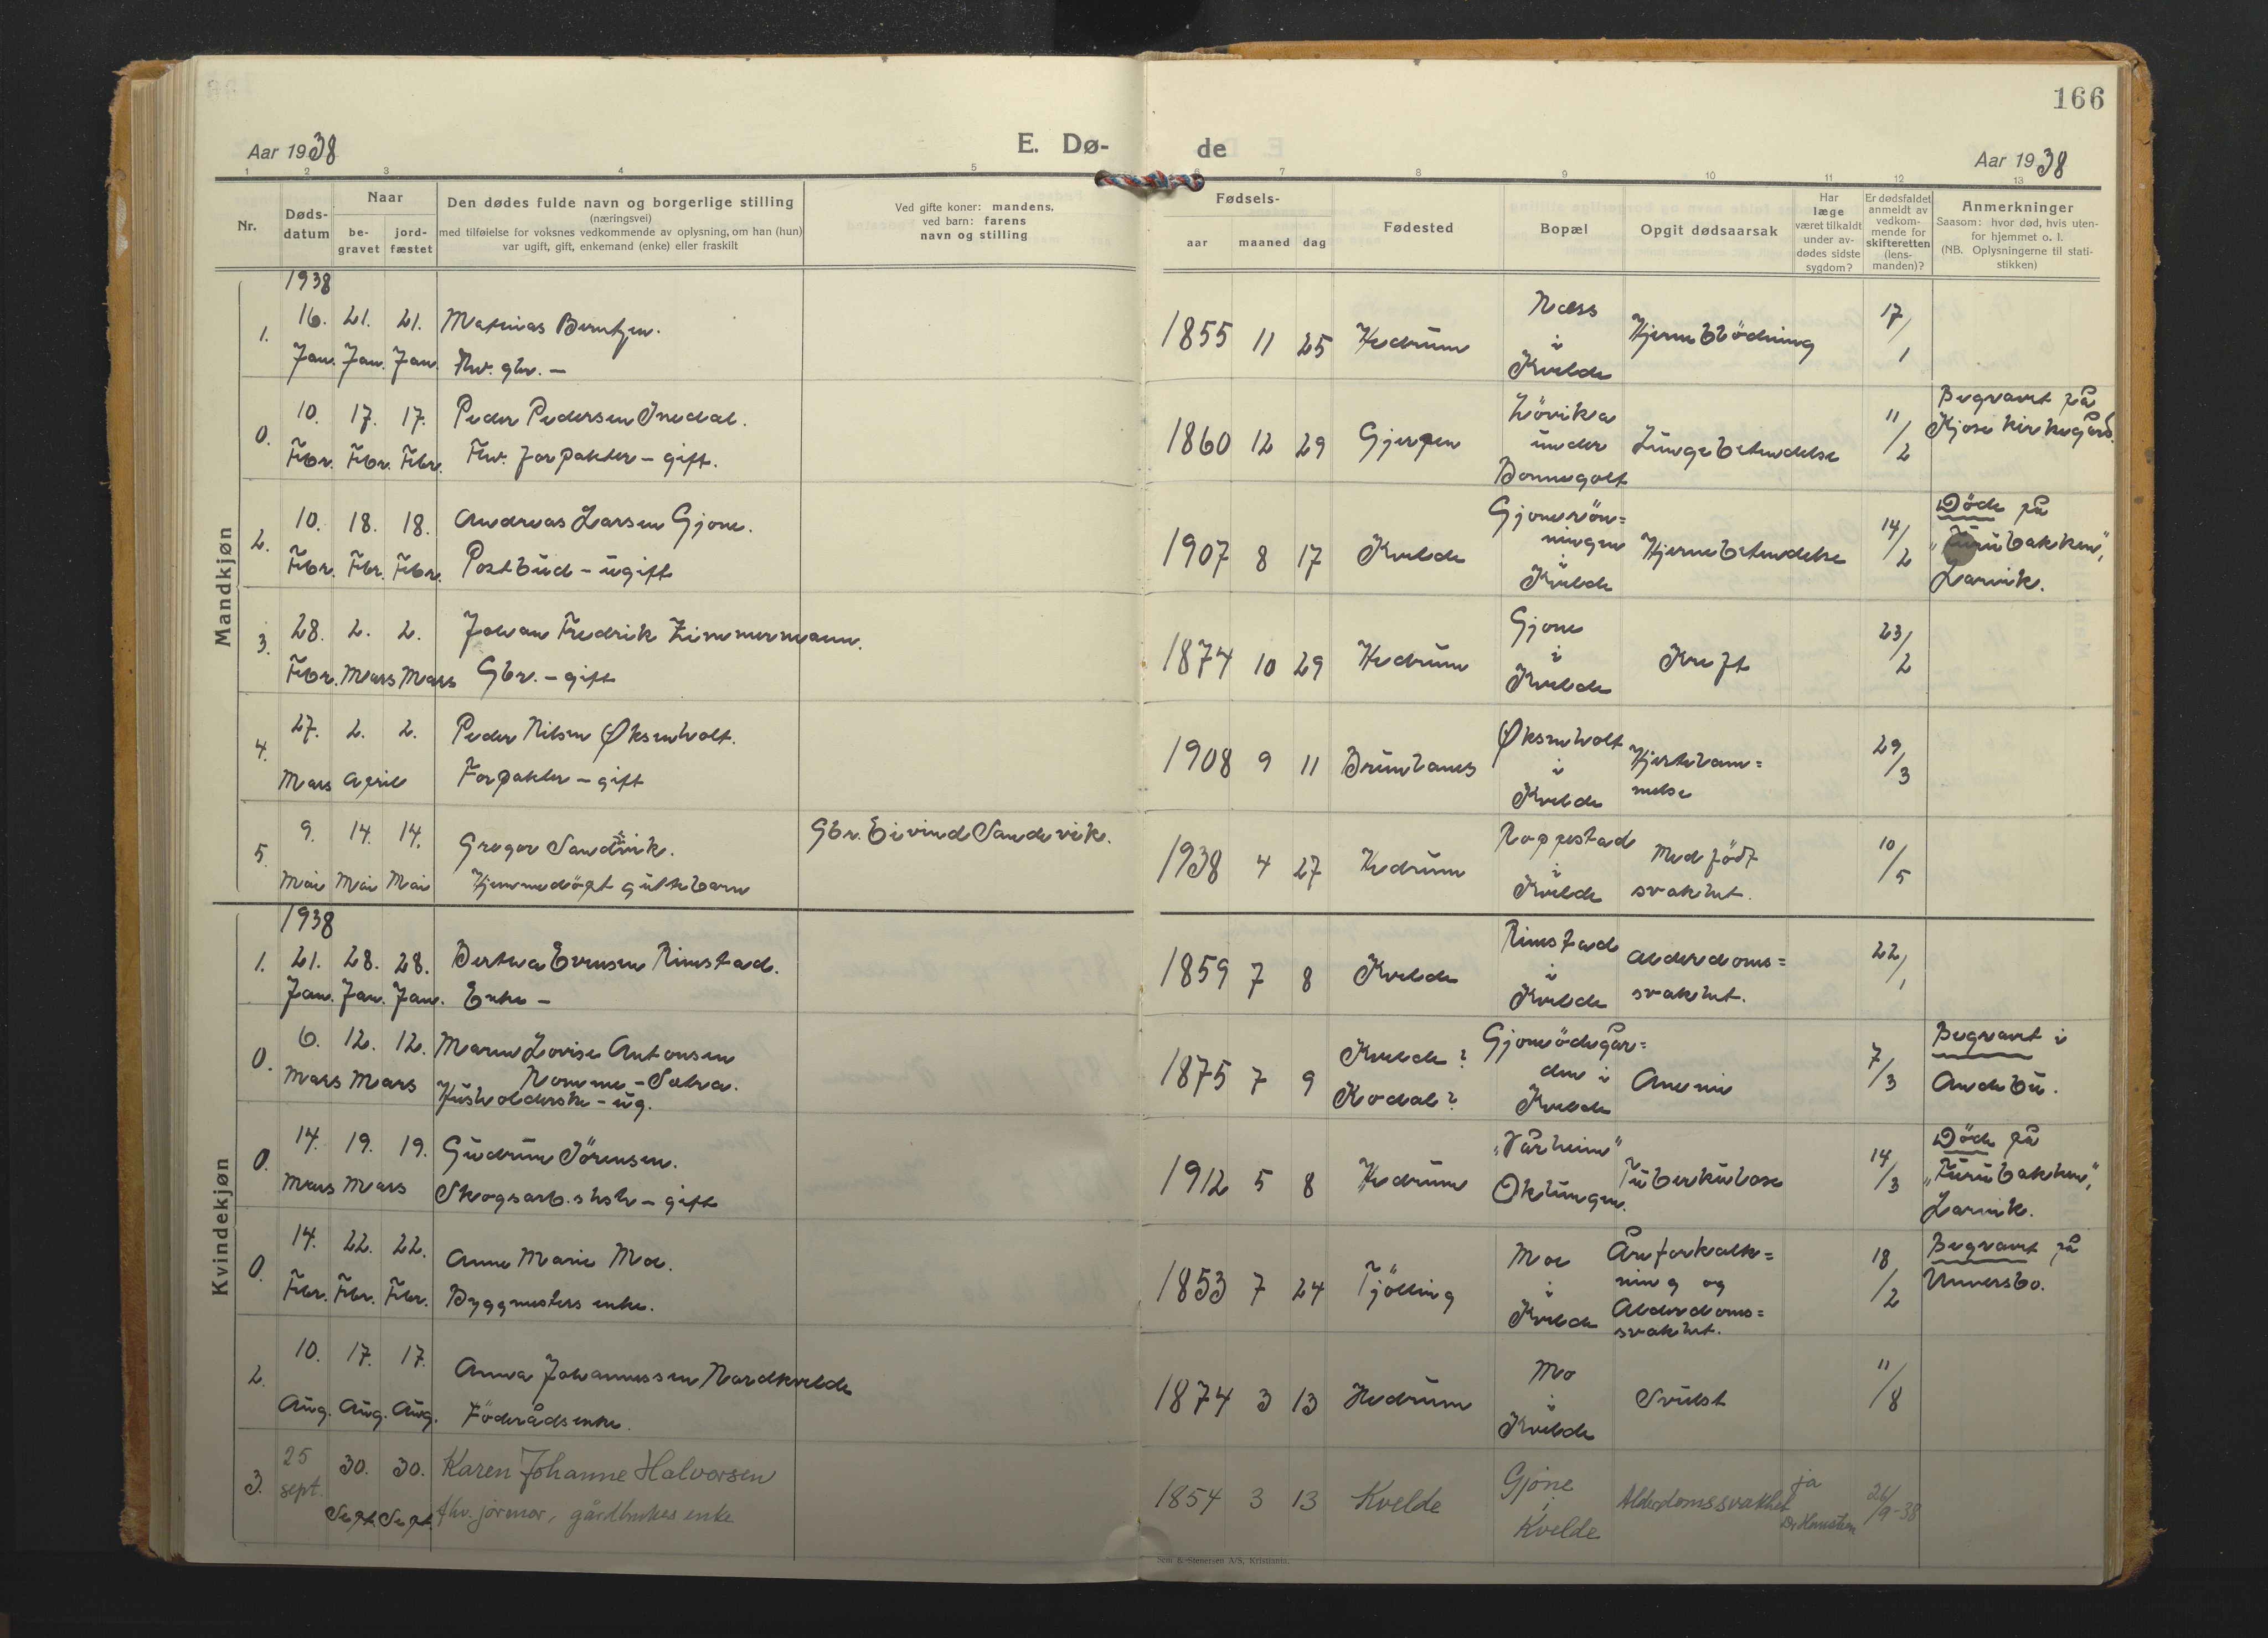 166
Aar 1938
E. Dø-
de
Aar 1938
1 2 3 4 5 6 7 8 9 10 11 12 13
Nr.
Døds-
datum
Naar
be-
gravet
jord-
fæstet
Den dødes fulde navn og borgerlige stilling
(næringsvei)
med tilføielse for voksnes vedkommende av oplysning, om han (hun)
var ugift, gift, enkemand (enke) eller fraskilt
Ved gifte koner: mandens,
ved barn: farens
navn og stilling
Fødsels-
aar maaned dag
Fødested
Bopæl
Opgit dødsaarsak
Har
læge
været tilkaldt
under av-
dødes sidste
sygdom?
Er dødsfaldet
anmeldt av
vedkom-
mende for
skifteretten
(lens-
manden)?
Anmerkninger
Saasom: hvor død, hvis uten-
for hjemmet o. l.
(NB. Oplysningerne til stati-
stikken)
Mandkjøn
1938
1. 16. 21. 21. Mathias Berntzen.
Jan. Jan. Jan. Fhv. gbr. —
1855 11 25 Hedrum
Næss
i
Kvelde
Hjerneblödning
17/1
0. 10. 17. 17. Peder Pedersen
Febr. Febr. Febr. Fhv. forpakter – gift.
1860 12 29 Gjerpen
Lövika
under
Bonnegolt
Lungebetendelse
11/2
Begravet på
Kjose kirkegård.
2. 10. 18. 18. Andreas Larsen Gjone.
Febr. Febr. Febr. Postbud – ugift
1907 8 17 Kvelde
Gjonerön=
ningen
i
Kvelde
Hjernebetendelse
14/2
Döde på
„Furubakken",
Larvik.
3. 28. 2. 2. Johan Fredrik Zimmermann.
Febr. Mars Mars Gbr. – gift
1874 10 29 Hedrum
Gjone
i
Kvelde
Kreft
23/2
4. 27. 2. 2. Peder Nilsen Øksenholt.
Mars April Forpakter – gift
1908 9 11 Brunlanes
Øksenholt
i
Kvelde
Hjertelam=
melse
29/3
5. 9. 14. 14. Gregor Sandvik.
Mai Mai Mai Hjemmedöpt guttebarn
Gbr. Eivind Sandvik.
1938 4 27 Hedrum
Roppestad
i
Kvelde
Medfödt
svakhet.
10/5
Kvindekjøn
1938
1. 21. 28. 28. Berthea Evensen Rimstad.
Jan. Jan. Jan. Enke –
1859 7 8 Kvelde
Rimstad
i
Kvelde
Alderdoms=
svakhet.
22/1
0. 6. 12. 12. Maren Lovise Antonsen
Mars Mars Nomme – Sælra.
Husholderske – ug.
1875 7 9 Kvelde?
Kodal?
Gjoneödegår=
den i
Kvelde
Anemie
7/3
Begravet i
Andebu.
0. 14. 19. 19. Gudrun Sörensen.
Mars Mars Skogsarb.shstr – gift
1912 5 8 Hedrum
„Vårheim"
Oklungen.
Tuberkulose
14/3
Döde på
„Furubakken",
Larvik.
0. 14. 22. 22. Anne Marie Moe.
Febr. Febr. Febr. Byggmesters enke.
1853 7 24 Tjölling
Moe
i
Kvelde
Åreforkalk=
ning og
Alderdoms=
svakhet.
18/2
Begravet på
Unnersbo.
2. 10. 17. 17. Anna Johannessen Nordkvelde
Aug. Aug. Aug. Föderådsenke.
1874 3 13 Hedrum
Mo
i
Kvelde
Svulst
11/8
3. 25 30. 30. Karen Johanne Halvorsen
sept. Sept. Sept. fhv. jormor, gårdbrukes enke
1854 3 13 Kvelde
Gjöne
i
Kvelde
Alderdomssvakhet
ja
26/9-38
Sem & Stenersen A/S, Kristiania.